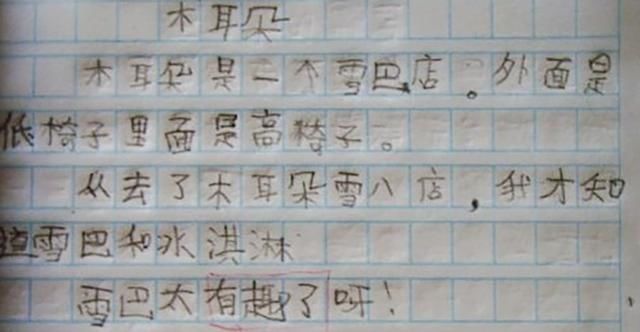 木耳朵
木耳朵是一个雪巴店。外面是
低椅子里面是高椅子。
从去了木耳朵雪八店，我才知
道雪巴和水淇淋
雪巴太有趣了呀！